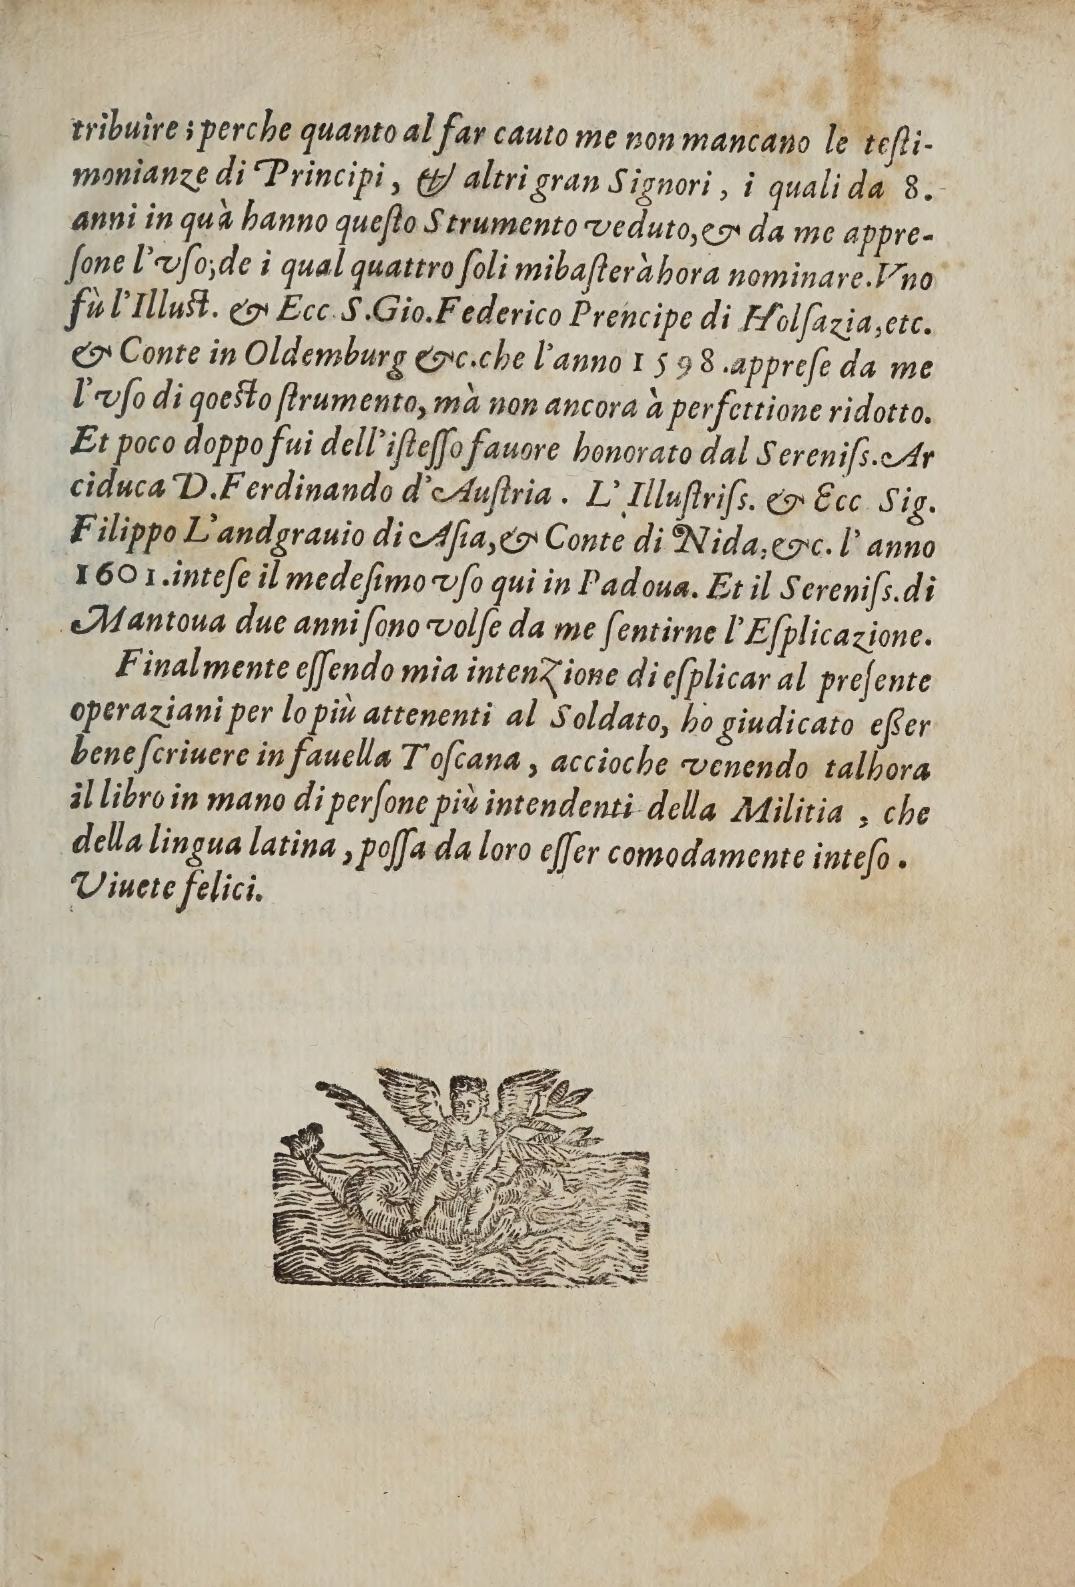 tribuire; perche quanto al far cauto me non mancano le teſti-
monianze di Principi, & altri gran Signori, i quali da 8.
anni in quà hanno queſto Strumento veduto, & da me appre-
ſone l'vſo; de i qual quattro ſoli mi baſterà hora nominare. Vno
fù l'Illuſt. & Ecc. S. Gio. Federico Prencipe di Holſazia, etc.
& Conte in Oldemburg &c. che l'anno 1598. appreſe da me
l'vſo di qoeſto ſtrumento, mà non ancora à perfettione ridotto.
Et poco doppo fui dell'iſteſſo fauore honorato dal Sereniſs. Ar
ciduca D. Ferdinando d'Auſtria. L'Illuſtriſs. & Ecc Sig.
Filippo L'andgrauio di Aſia, & Conte di Nida, &c. l'anno
1601. inteſe il medeſimo vſo qui in Padoua. Et il Sereniſs. di
Mantoua due anni ſono volſe da me ſentirne l'Eſplicazione.
Finalmente eſſendo mia intenzione di eſplicar al preſente
operaziani per lo più attenenti al Soldato, ho giudicato eßer
bene ſcriuere in fauella Toſcana, accioche venendo talhora
il libro in mano di perſone più intendenti della Militia, che
della lingua latina, poſſa da loro eſſer comodamente inteſo.
Viuete felici.